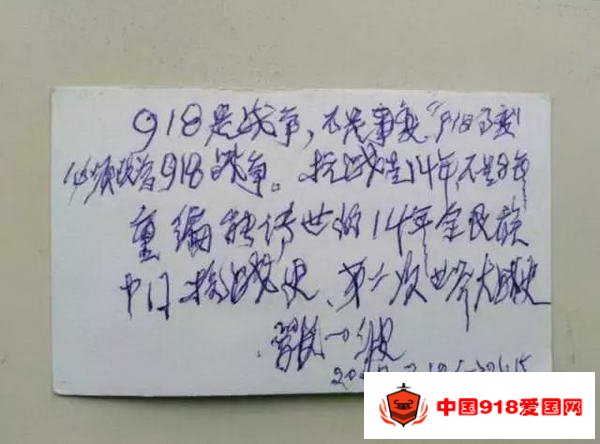 918是战争,不是事变"918事变"
必须改为918战争。抗战是14年,不是8年
重编能传世的14年全民族
中日抗战史、第二次世界大战史
中国918爱国网